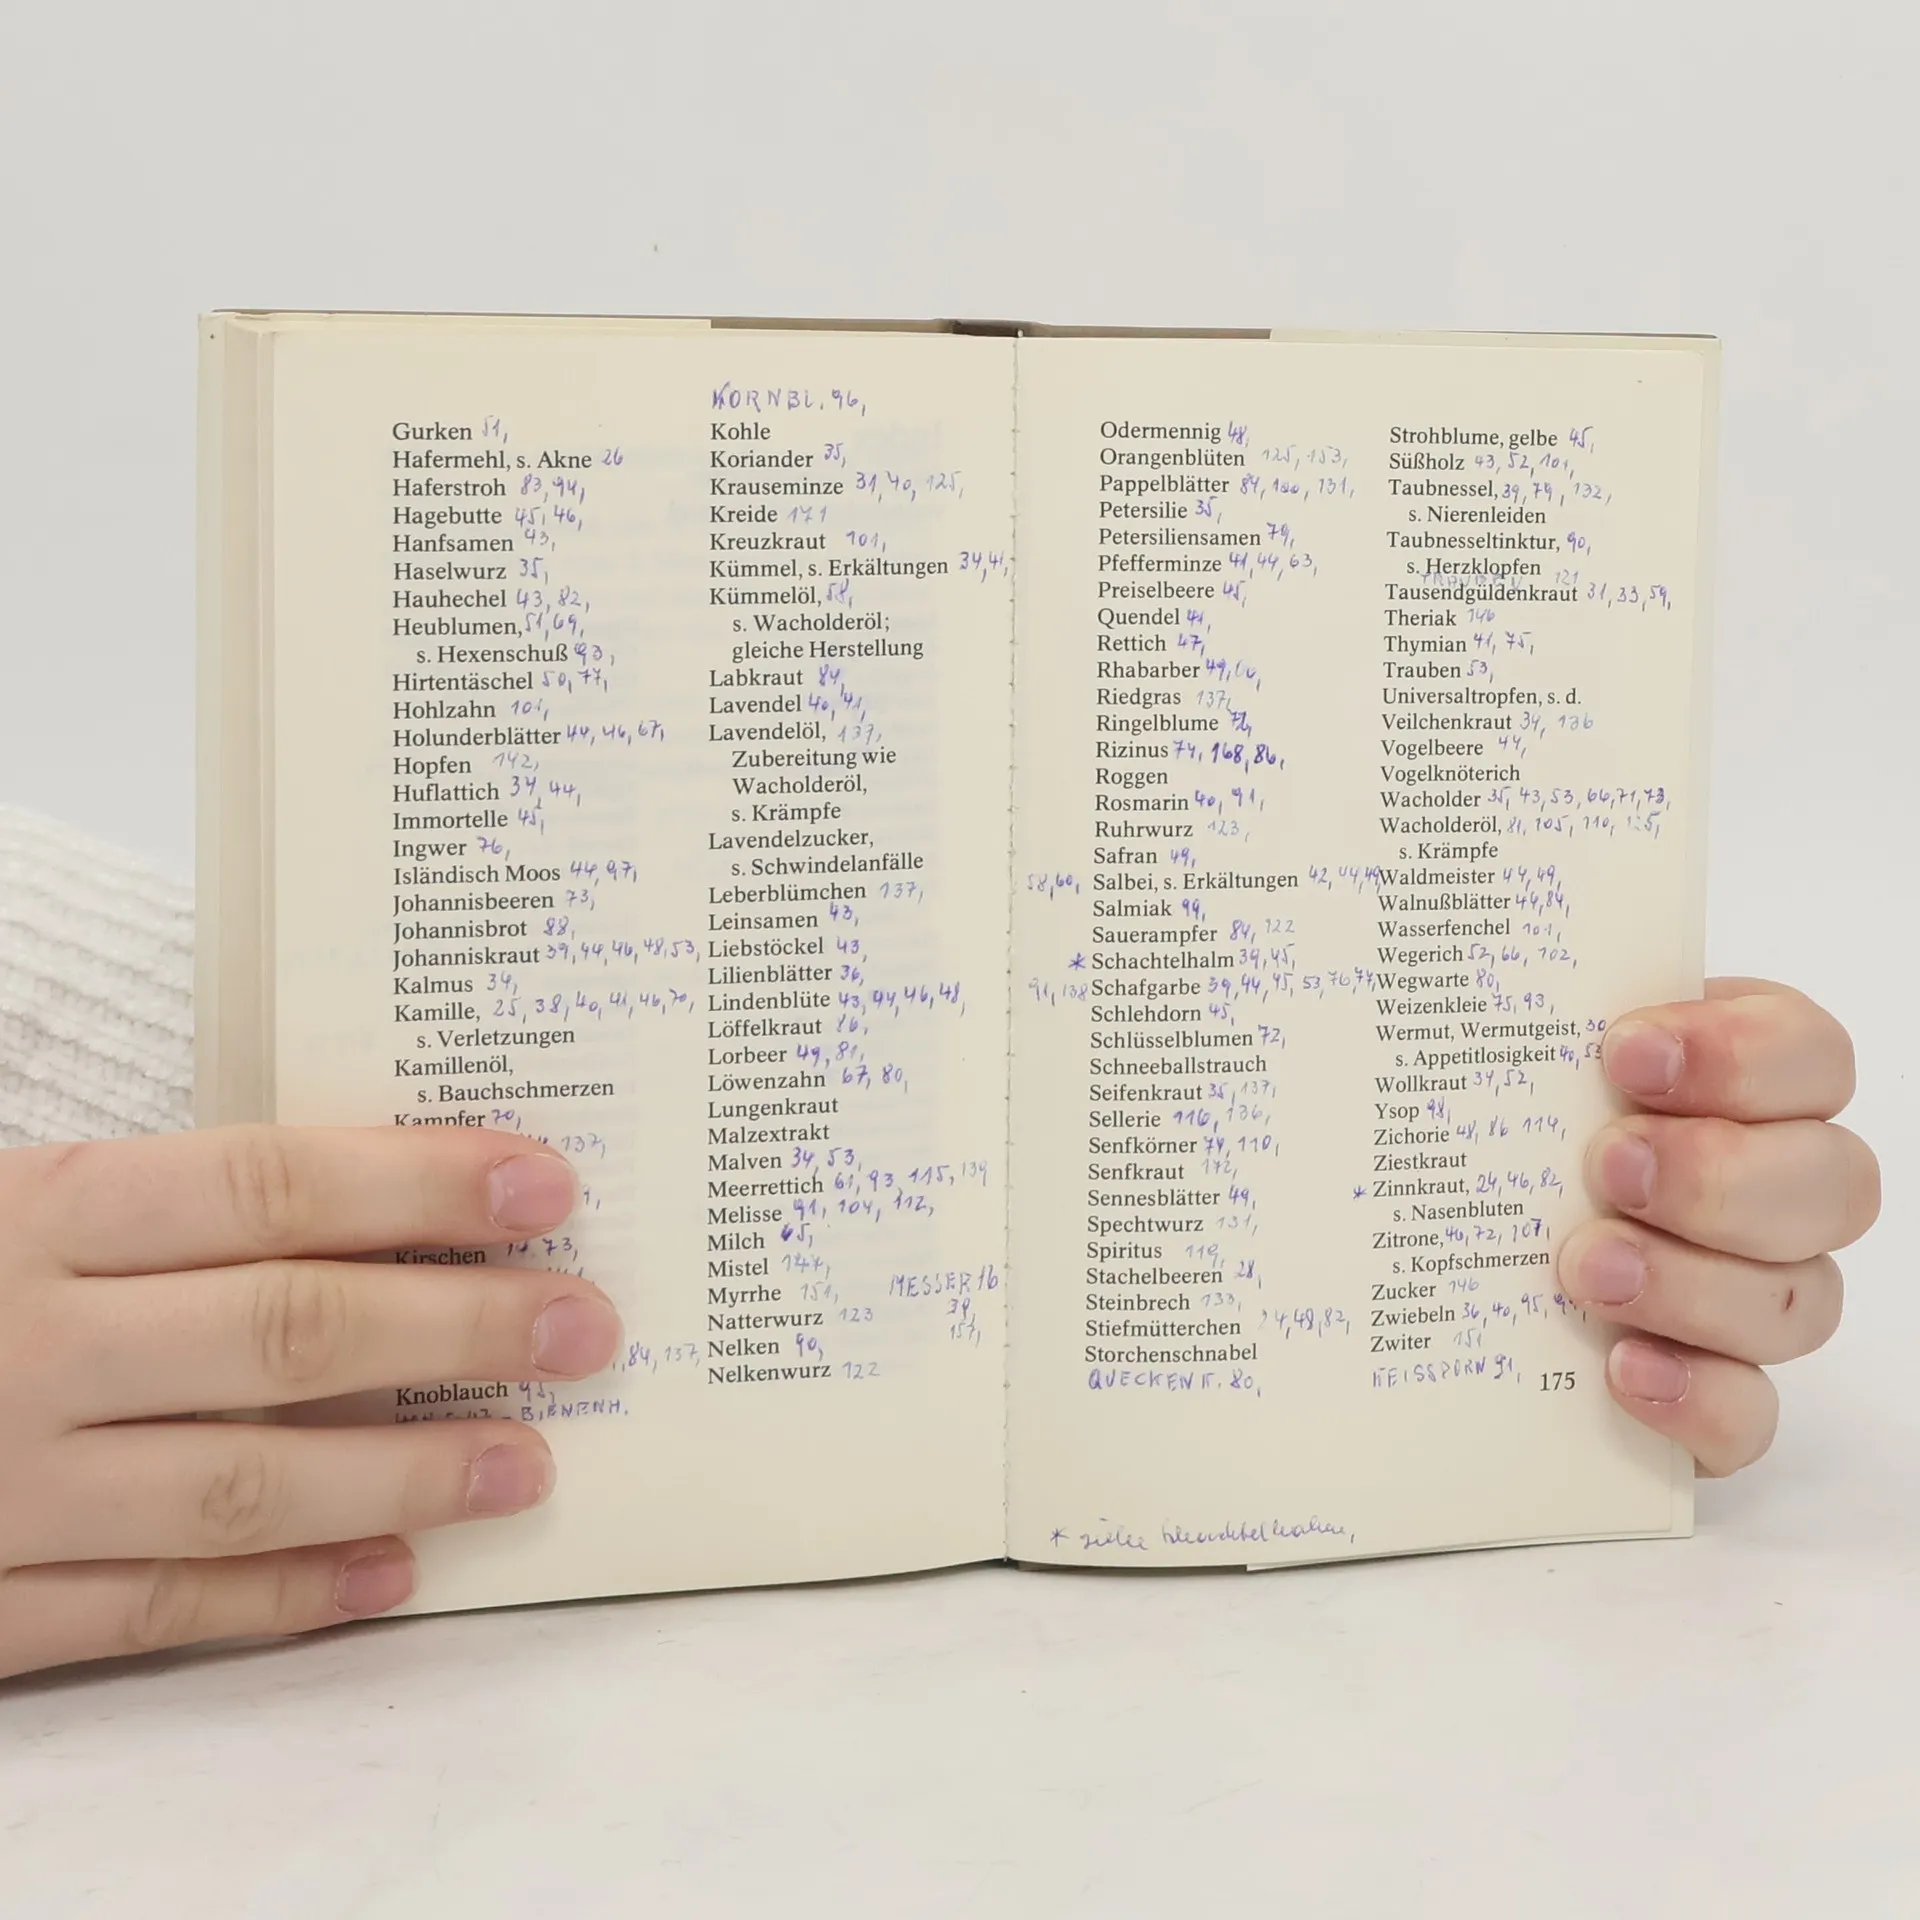 Gurken 51,
Hafermehl, s. Akne 26
Haferstroh 83, 94,
Hagebutte 45, 46,
Hanfsamen 43,
Haselwurz 35,
Hauhechel 43, 82,
Heublumen, 51, 69,
s. Hexenschuß 93,
Hirtentäschel 50, 77,
Hohlzahn 101,
Holunderblätter 44, 46, 67,
Hopfen 142,
Huflattich 34, 44,
Immortelle 45,
Ingwer 76,
Isländisch Moos 44, 97,
Johannisbeeren 73,
Johannisbrot 88,
Johanniskraut 39, 44, 46, 48, 53,
Kalmus 34,
Kamille, 25, 38, 40, 41, 46, 70,
s. Verletzungen
Kamillenöl,
s. Bauchschmerzen
Kampfer 70,
137,
Kirschen 73,
84, 137,
Knoblauch 95,
BIENENH.
KORNBL. 96,
Kohle
Koriander 35,
Krauseminze 31, 40, 125,
Kreide 171
Kreuzkraut 101,
Kümmel, s. Erkältungen 34, 41,
Kümmelöl, 58,
s. Wacholderöl;
gleiche Herstellung
Labkraut 84,
Lavendel 40, 41,
Lavendelöl, 137,
Zubereitung wie
Wacholderöl,
s. Krämpfe
Lavendelzucker,
s. Schwindelanfälle
Leberblümchen 137,
Leinsamen 43,
Liebstöckel 43,
Lilienblätter 36,
Lindenblüte 43, 44, 46, 48,
Löffelkraut 86,
Lorbeer 49, 81,
Löwenzahn 67, 80,
Lungenkraut
Malzextrakt
Malven 34, 53,
Meerrettich 61, 93, 115, 139
Melisse 91, 104, 112,
Milch 65,
Mistel 147,
Myrrhe 151, MESSER 16
Natterwurz 123 39,
Nelken 90, 157,
Nelkenwurz 122
Odermennig 48,
Orangenblüten 125, 153,
Pappelblätter 84, 100, 131,
Petersilie 35,
Petersiliensamen 79,
Pfefferminze 41, 44, 63,
Preiselbeere 45,
Quendel 41,
Rettich 47,
Rhabarber 49,
Riedgras 137,
Ringelblume
Rizinus 74, 168, 86,
Roggen
Rosmarin 40, 91,
Ruhrwurz 123,
Safran 49,
58, 60, Salbei, s. Erkältungen 42, 44, 49
Salmiak 99,
Sauerampfer 84, 122
* Schachtelhalm 39, 45,
91, 138 Schafgarbe 39, 44, 45, 53, 76, 77,
Schlehdorn 45,
Schlüsselblumen 72,
Schneeballstrauch
Seifenkraut 35, 137,
Sellerie 116, 136,
Senfkörner 74, 110,
Senfkraut 172,
Sennesblätter 49,
Spechtwurz 131,
Spiritus 119,
Stachelbeeren 28,
Steinbrech 133,
Stiefmütterchen 48, 82,
Storchenschnabel
QUECKEN K. 80,
Strohblume, gelbe 45,
Süßholz 43, 52, 101,
Taubnessel, 39, 79, 132,
s. Nierenleiden
Taubnesseltinktur, 90,
s. Herzklopfen
TRAUBEN 121
Tausendgüldenkraut 31, 33, 59,
Theriak 146
Thymian 41, 75,
Trauben 53,
Universaltropfen, s. d.
Veilchenkraut 34, 136
Vogelbeere 44,
Vogelknöterich
Wacholder 35, 43, 53, 66, 71, 73,
Wacholderöl, 81, 105, 110, 125,
s. Krämpfe
Waldmeister 44, 49,
Walnußblätter 44, 84,
Wasserfenchel 101,
Wegerich 52, 66, 102,
Wegwarte 80,
Weizenkleie 75, 93,
Wermut, Wermutgeist, 30
s. Appetitlosigkeit 40, 53
Wollkraut 34, 52,
Ysop 98,
Zichorie 48, 86 114,
Ziestkraut
* Zinnkraut, 24, 46, 82,
s. Nasenbluten
Zitrone, 46, 72, 107,
s. Kopfschmerzen
Zucker 146
Zwiebeln 36, 40, 95,
Zwiter 151
WEISSDORN 91,
175
* siehe